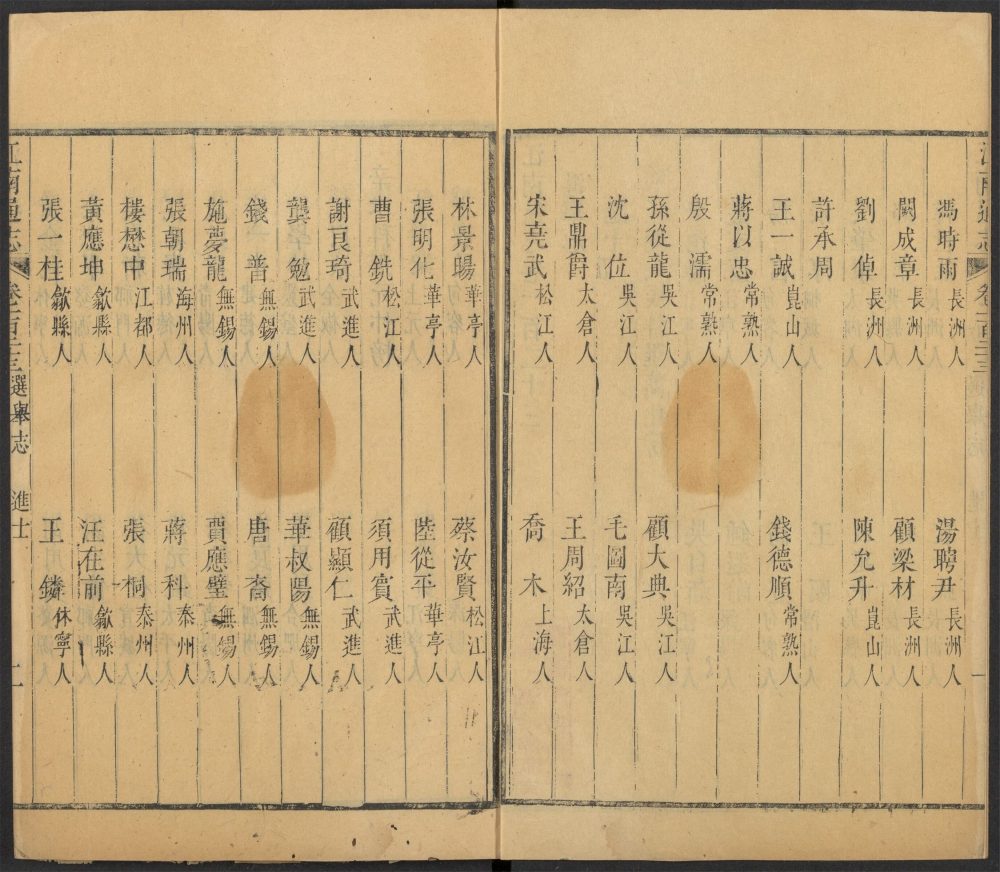 江南通志 卷一百二十三
馮時雨 長洲人 湯聘尹 長洲人
闕成章 長洲人 顧梁材 長洲人
劉倬 長洲人 陳允升 崑山人
許承周
王一誠 崑山人 錢德順 常熟人
蔣以忠 常熟人
殷濡 常熟人
孫從龍 吳江人 顧大典 吳江人
沈位 吳江人 毛圖南 吳江人
王鼎爵 太倉人 王周紹 太倉人
宋堯武 松江人 喬木 上海人
林景暘 華亭人 蔡汝賢 松江人
張明化 華亭人 陸從平 華亭人
曹銑 松江人 須用賓 武進人
謝良琦 武進人 顧顯仁 武進人
龔勉 武進人 華叔陽 無錫人
錢普 無錫人 唐裔 無錫人
施夢龍 無錫人 賈應璧 無錫人
張朝瑞 海州人 蔣科 泰州人
樓懋中 江都人 張桐 泰州人
黃應坤 歙縣人 汪在前 歙縣人
張一桂 歙縣人 王鏻 休寧人
江南通志 卷一百二十三 選舉志 進士 二